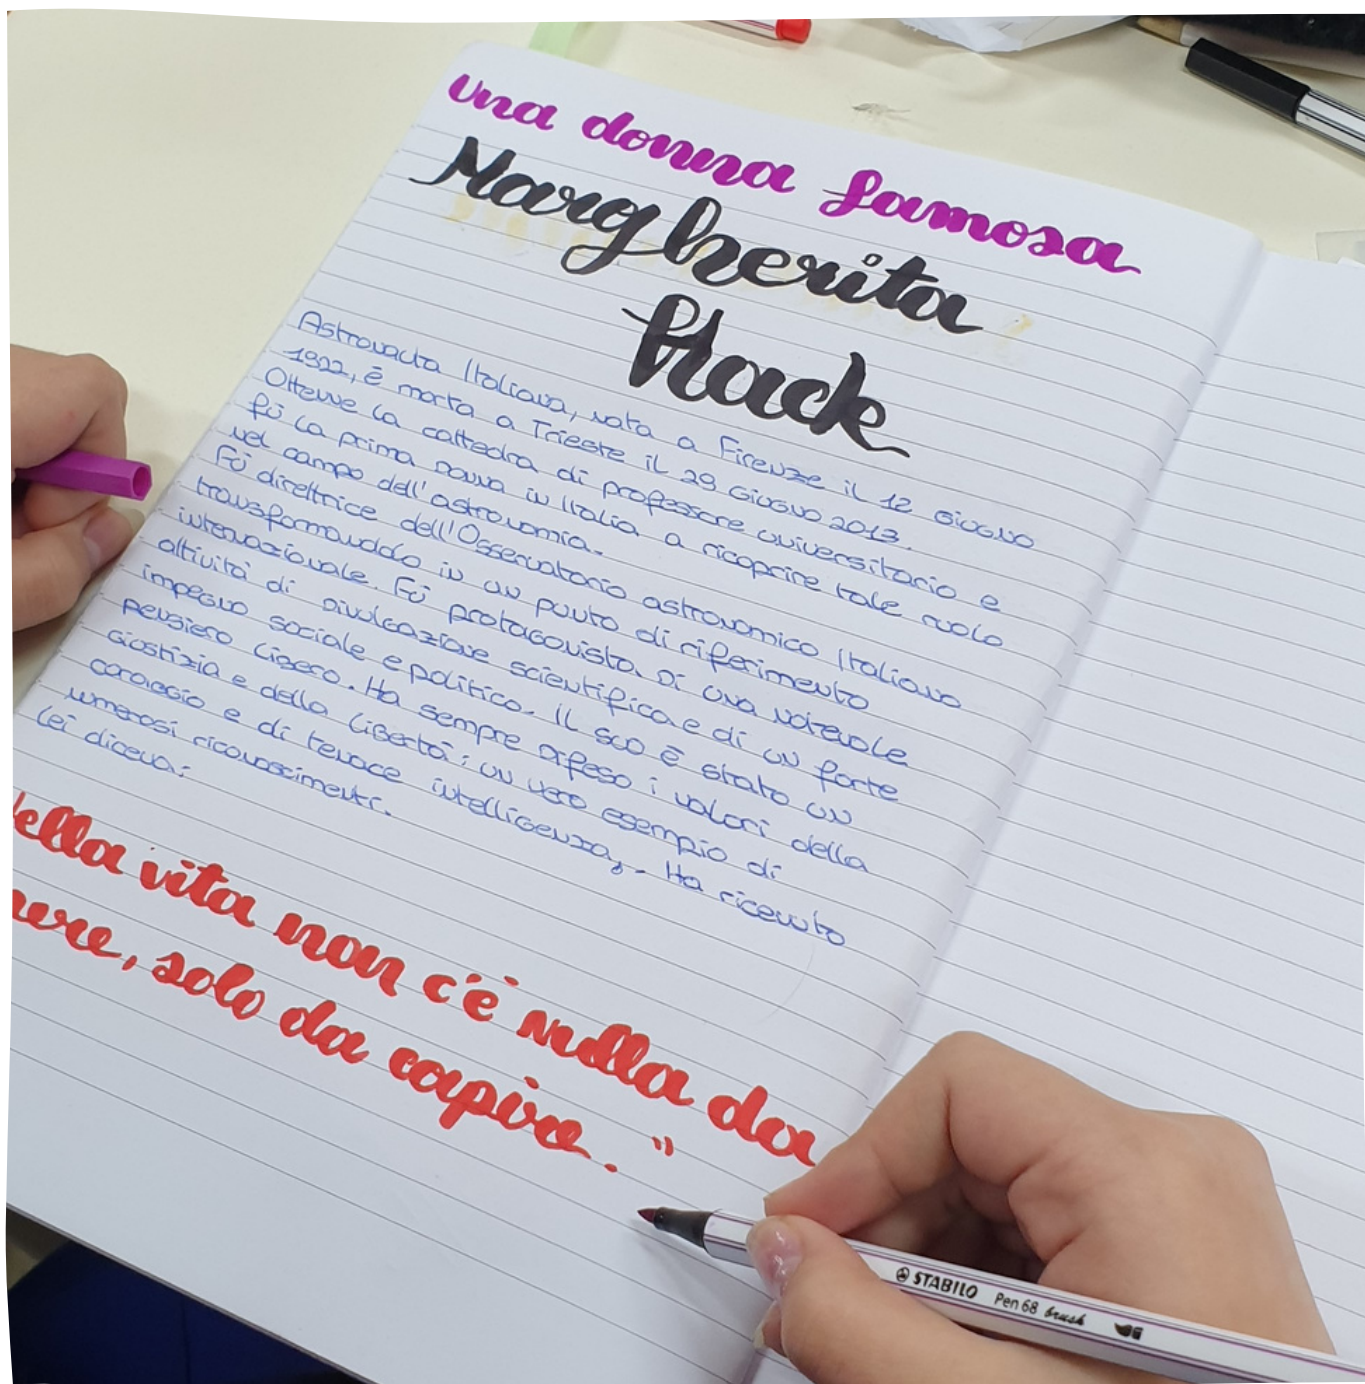 una donna famosa
Margherita
Hack
Astronauta Italiana, nata a Firenze il 12 Giugno
1922, è morta a Trieste il 29 Giugno 2013.
Ottenne la cattedra di professore universitario e
fù la prima donna in Italia a ricoprire tale ruolo
nel campo dell'astronomia.
Fù direttrice dell'Osservatorio astronomico Italiano
transformandolo in un punto di riferimento
internazionale. Fù protagonista di una notevole
attività di divulgazione scientifica e di un forte
impegno sociale e politico. Il suo è stato un
pensiero libero. Ha sempre difeso i valori della
giustizia e della libertà; un vero esempio di
coraggio e di tenace intelligenza. Ha ricevuto
numerosi riconoscimenti.
Lei diceva:
della vita non c'è nulla da
, solo da capire."
STABILO Pen 68 brush